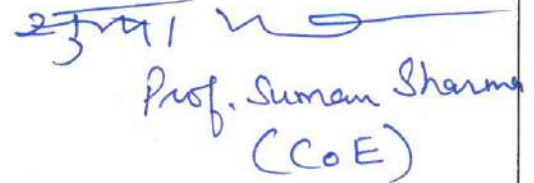 Prof. Suman Sharma
(CoE)